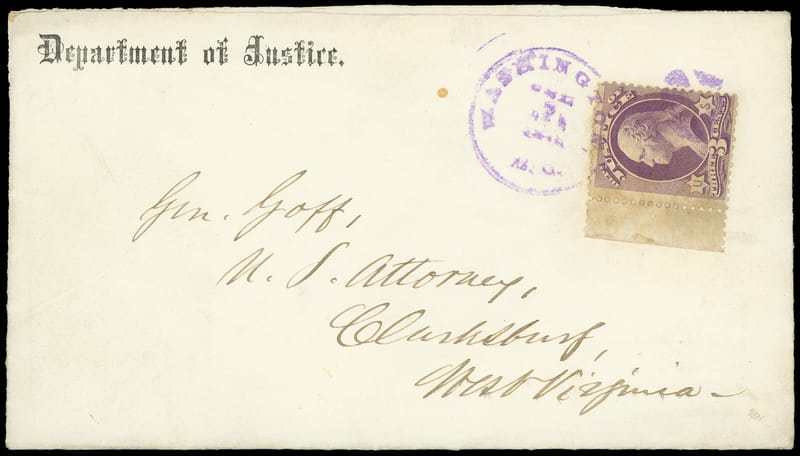 Department of Justice.
WASHINGTON
D.C.
JUSTICE
U S
3
Gen. Goff,
U. S. Attorney,
Clarksburg,
West Virginia